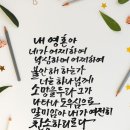 내 영혼아
네가 어찌하여
낙심하며 어찌하여
불안해 하는가
너는 하나님께
소망을 두라 그가
나타나 도우심으로
말미암아 내가 여전히
찬송하리로다